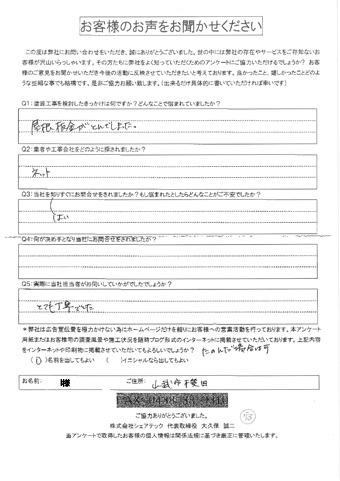 お客様のお声をお聞かせください
この度は弊社にお問い合わせをいただき、誠にありがとうございました。世の中には弊社の存在やサービスをご存知ないお
客様が沢山いらっしゃいます。その方たちに弊社をよく知っていただくためのアンケートにご協力いただけるでしょうか？ お客
様のご意見をお聞かせいただき今後の活動に反映させていただきたいと考えております。良かったこと、嬉しかったことどのよ
うな些細な事でも結構です。是非ご協力お願い致します。（出来るだけ具体的に書いていただければ幸いです）
Q1：塗装工事を検討したきっかけは何ですか？どんなことで悩まれていましたか？
屋根板金がとんでしまった。
Q2：業者や工事会社をどのように探されましたか？
ネット
Q3：当社を知りすぐにお問合せをされましたか？もし悩まれたとしたらどんなことがご不安でしたか？
はい
Q4：何が決め手となり当社にお問合せをされましたか？
Q5：実際に当社担当者がお伺いしていかがでしたでしょうか？
とても丁寧でした
＊弊社は広告宣伝費を極力かけない為にホームページだけを頼りにお客様への営業活動を行っております。本アンケート
用紙またはお客様宅の調査風景や施工状況を随時ブログ形式のインターネットに掲載させていただいております。上記内容
をインターネットや印刷物に掲載させていただいてもよろしいでしょうか？ たのんだ場合は可
（ ）名前を出してもよい （ ）イニシャルなら出してもよい
お名前： 様
ご住所： 山武市
ご協力ありがとうございました。
株式会社シェアテック 代表取締役 大久保 誠二
当アンケートで取得したお客様の個人情報は関係法規に基づき厳正に管理いたします。